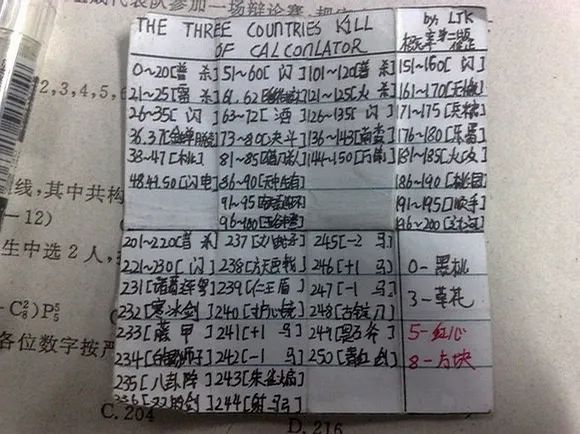 代表队参加一场辩论赛
2,3,4,5,6
线,其中共构
-12)
生中选2人,
-C₈²)P₅⁵
各位数字按
C. 204
D. 216
THE THREE COUNTRIES KILL
OF CALCONLATOR
by: LTK
概率第二版
修正
0~20[普 杀] 51~60[ 闪 ] 101~120[普 杀] 151~160[ 闪 ]
21~25[雷 杀] 61,62 121~125[火 杀] 161~170[无懈]
26~35[ 闪 ] 63~72[ 酒 ] 126~135[ 闪 ] 171~175[兵粮]
36.37[金蝉脱壳] 73~80[决斗] 136~143[南蛮] 176~180[乐蜀]
38~47[桃] 81~85 144~150[万箭] 181~185[火攻]
48.49.50[闪电] 86~90[无中生有] 186~190[桃园]
91~95 191~195[顺手]
96~100[五谷丰登] 196~200
201~220[普 杀] 237 245[-2 马]
221~230[ 闪 ] 238[方天画戟] 246[+1 马] 0-黑桃
231[诸葛连弩] 239[仁王盾] 247[-1 马]
232[寒冰剑] 240[护心镜] 248[古锭刀] 3-草花
233[藤 甲] 241[+1 马] 249 5-红心
234[白银狮子] 242[-1 马] 250[青釭剑] 8-方块
235[八卦阵] 243[朱雀扇]
236 244